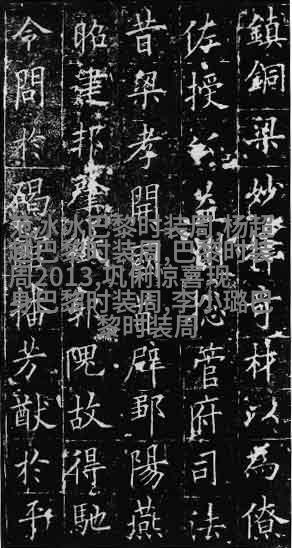 鎮銅梁妙奇材以為僚
佐授益總管府司法
昔梁孝開國辟鄒陽燕
昭建邦肇郭隗故得馳
令問於碣播芳猷於平
范冰冰巴黎时装周,杨超
越巴黎时装周,巴黎时装
周2013,巩俐惊喜现
身巴黎时装周,李小璐巴
黎时装周